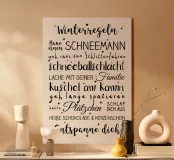 Winterregeln
Baue einen SCHNEEMANN
geh raus zum Schlittenfahren
schneeballschlacht!
LACHE MIT DEINER Familie
kuschel am Kamin
geh lange spazieren
Plätzchen
SCHLAF DICH AUS
HEIßE SCHOKOLADE & KERZENSCHEIN
entspanne dich!